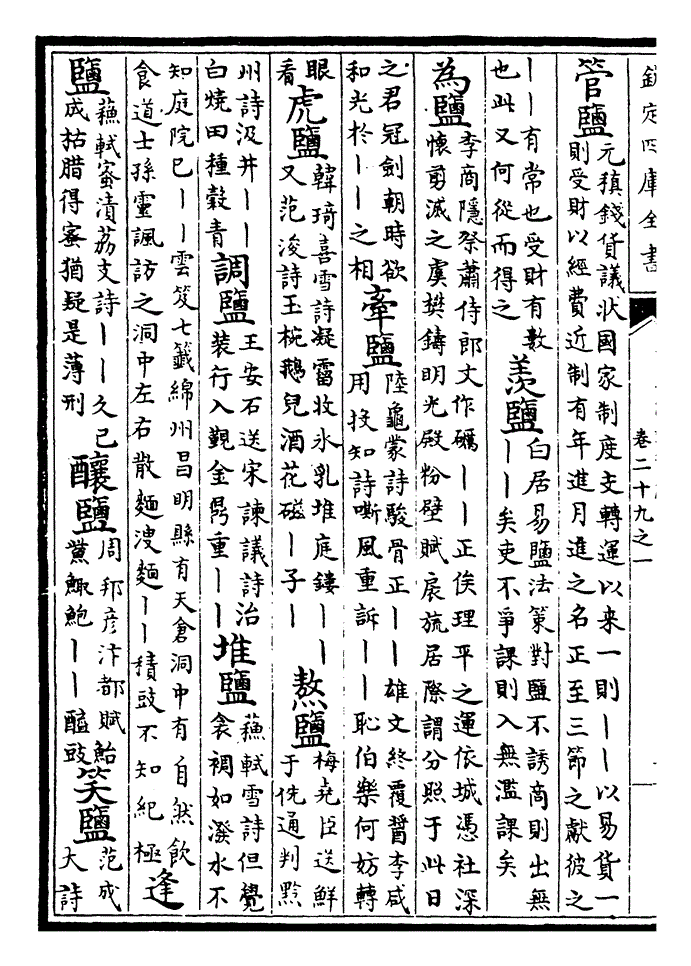 欽定四庫全書
卷二十九之一
管鹽
元稹錢貨議狀國家制度支轉運以来一則丨丨以易貨一
則受財以經費近制有年進月進之名正至三節之獻彼之
丨丨有常也受財有數
也此又何從而得之
羡鹽
白居易鹽法策對鹽不誘商則出無
丨丨矣吏不爭課則入無濫課矣
為鹽
李商隱祭蕭侍郎文作礪丨丨正俟理平之運依城憑社深
懷剪滅之虞樊鑄明光殿粉壁賦扆旒居際謂分照于此日
之君冠劍朝時欲
和光於丨丨之相
牽鹽
陸龜蒙詩駿骨正丨丨雄文終覆醤李咸
用投知詩嘶風重訴丨丨恥伯樂何妨轉
眼
看
虎鹽
韓琦喜雪詩凝霤收氷乳堆庭鏤丨丨
又范浚詩玉椀鵝兒酒花磁丨子丨
熬鹽
梅堯臣送鮮
于侁通判黔
州詩汲井丨丨
白燒田種穀青
調鹽
王安石送宋諫議詩治
装行入覲金鼎重丨丨
堆鹽
蘓軾雪詩但覺
衾裯如潑水不
知庭院已丨丨雲笈七籤綿州昌明縣有天倉洞中有自然飲
食道士孫靈諷訪之洞中左右散麵溲麵丨丨積豉不知紀極
逢
鹽
蘓軾蜜漬荔支詩丨丨久已
成枯腊得蜜猶疑是薄刑
釀鹽
周邦彦汴都賦鮐
鮆鯫鮑丨丨醢豉
笑鹽
范成
大詩